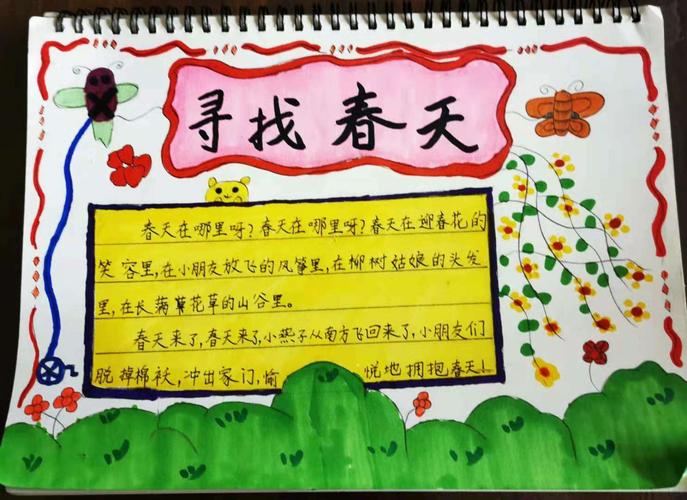 寻找春天
春天在哪里呀?春天在哪里呀?春天在迎春花的
笑容里,在小朋友放飞的风筝里,在柳树姑娘的头发
里,在长满花草的山谷里。
春天来了,春天来了,小燕子从南方飞回来了,小朋友们
脱掉棉袄,冲出家门,愉悦地拥抱春天!